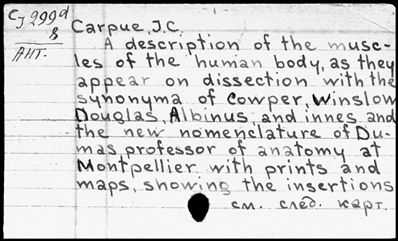 Cj 299d/8
Ант.
Carpue, J.C.
A description of the musc-
les of the human body, as they
appear on dissection with the
synonyma of Cowper, Winslow
Douglas, Albinus, and innes and
the new nomenclature of Du-
mas professor of anatomy at
Montpellier with prints and
maps, showing the insertions
см. след. карт.